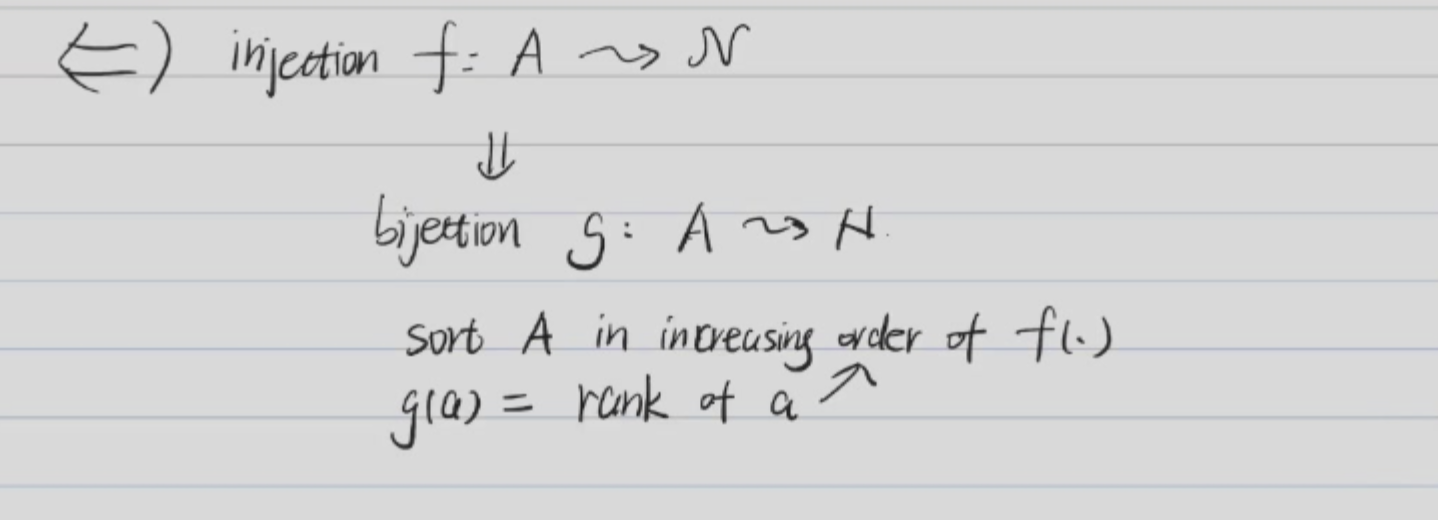 ⇐) injection f: A ⇝ N
⇓
bijection g: A ⇝ N.
sort A in increasing order of f(·)
g(a) = rank of a ↗